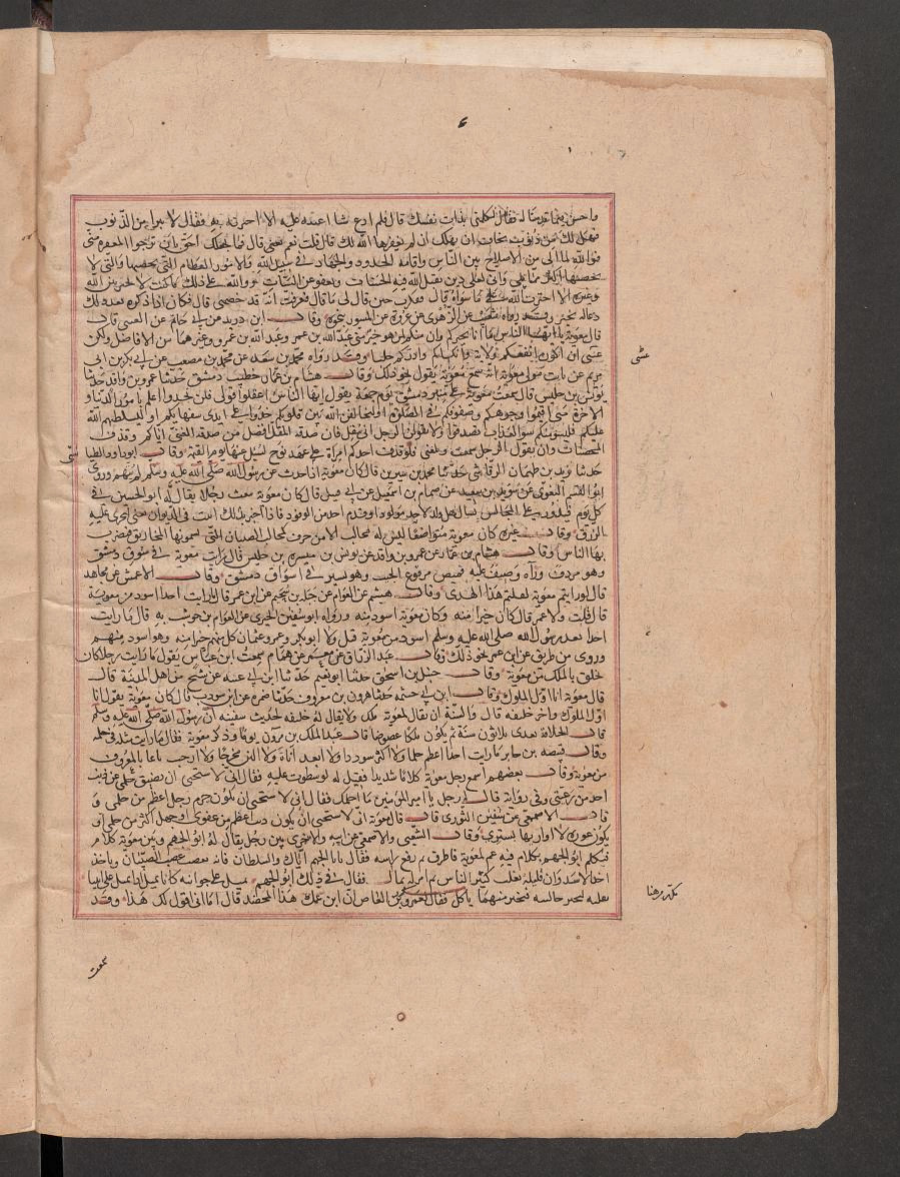 واحسن فيما قدمنا له فقال لتكلمني بذات نفسك قال فلم ادع شيئا اعيبه عليه الا اخبرته به فقال لا تبرا من الذنوب
فهل لك من ذنوب تخاف ان تهلك ان لم يغفرها الله لك قال قلت نعم يعني قال فما يجعلك احق بان ترجوا المغفرة مني
فوالله لما الى من الاصلاح بين الناس واقامة الحدود والجهاد في سبيل الله والامور العظام التي تحصيها والتي لا
تحصيها اكثر مما تلي واني لعلى دين يقبل الله فيه الحسنات ويعفو عن السيات والله على ذلك ما كنت لاخير بين الله
وغيره الا اخترت الله على ما سواه قال ففكرت حين قال لي ما قال فعرفت انه قد خصمني قال فكان اذا ذكره بعد ذلك
دعا له بخير وقد رواه شعيب عن الزهري عن عروة عن المسور بنحوه وقال ابن دريد عن ابي حاتم عن العتبي قال
قال معوية يا ايها الناس ما انا بخيركم وان منكم لمن هو خير مني عبد الله بن عمر وعبد الله بن عمرو وغيرهما من الافاضل ولكن
عسى ان اكون انفعكم ولاية وانكاكم وادركم حلبا وقد رواه محمد بن سعد عن محمد بن مصعب عن ابي بكر بن ابي
مريم عن ثابت مولى معوية انه سمع معوية يقول نحو ذلك وقال هشام بن عمار خطيب دمشق حدثنا عمرو بن واقد حدثنا
يونس بن حلبس قال سمعت معوية على منبر دمشق يوم جمعة يقول ايها الناس اعقلوا قولي فلن تجدوا اعلم بامور الدنيا و
الاخرة مني اقيموا وجوهكم وصفوفكم في الصلوة او ليخالفن الله بين قلوبكم خذوا على ايدي سفهايكم او ليسلطنهم الله
عليكم فليسومنكم سوء العذاب تصدقوا ولا يقولن الرجل اني مقل فان صدقة المقل افضل من صدقة الغني اياكم وقذف
المحصنات وان يقول الرجل سمعت وبلغني فلو قذف احدكم امراة على عهد نوح لسئل عنها يوم القيمة وقال ابو داود الطيالسي
حدثنا يزيد بن طهمان الرقاشي حدثنا محمد بن سيرين قال كان معوية اذا حدث عن رسول الله صلى الله عليه وسلم لم يتهم وروى
ابو القسم البغوي عن سويد بن سعيد عن ضمام بن اسمعيل عن ابي قبيل قال كان معوية يبعث رجلا يقال له ابو الجيش في
كل يوم فيدور على المجالس يسال هل ولد لاحد مولود او قدم احد من الوفود فاذا اخبر بذلك اثبت في الديوان يعني ليجري عليه
الرزق وقال غيره كان معوية متواضعا ليس له مجالد الا من حرف كمجالد الصبيان التي يسمونها المخاريق فيضرب
بها الناس وقال هشام بن عمار عن عمرو بن واقد عن يونس بن ميسرة بن حلبس قال رايت معوية في سوق دمشق
وهو مردف وراه وصيفا عليه قميص مرقوع الجيب وهو يسير في اسواق دمشق وقال الاعمش عن مجاهد
قال لو رايتم معوية لقلتم هذا المهدي وقال هشيم عن العوام عن جبلة بن سحيم عن ابن عمر قال ما رايت احدا اسود من معوية
قال قلت ولا عمر قال كان خيرا منه وكان معوية اسود منه ورواه ابو سفين الحيري عن العوام بن حوشب به قال ما رايت
احدا بعد رسول الله صلى الله عليه وسلم اسود من معوية قيل ولا ابو بكر وعمر وعثمان كانوا خيرا منه وهو اسود منهم
وروى من طريق عن ابن عمر نحو ذلك وقال عبد الرزاق عن معمر عن همام سمعت ابن عباس يقول ما رايت رجلا كان
اخلق بالملك من معوية وقال حنبل بن اسحق حدثنا ابو نعيم حدثنا ابن ابي عتيبة عن شيخ من اهل المدينة قال
قال معوية انا اول الملوك وقال ابن ابي خيثمة حدثنا هرون بن معروف حدثنا ضمرة عن ابن شوذب قال كان معوية يقول انا
اول الملوك واخر خليفة قال والسنة ان يقال لمعوية ملك ولا يقال له خليفة لحديث سفينة ان رسول الله صلى الله عليه وسلم
قال الخلافة بعدي ثلاثون سنة ثم يكون ملكا عضوضا قال عبد الملك بن مروان يوما وذكر معوية فقال ما رايت مثله في حلمه
وقال قبيصة بن جابر ما رايت احدا اعظم حلما ولا اكثر سوددا ولا ابعد اناة ولا الين مخرجا ولا ارحب باعا بالمعروف
من معوية وقال بعضهم اسمع رجل معوية كلاما شديدا فقيل له لو سطوت عليه فقال اني لاستحيي ان يضيق حلمي عن ذنب
احد من رعيتي وفي رواية قال له رجل يا امير المومنين ما احلمك فقال اني لاستحيي ان يكون جرم رجل اعظم من حلمي و
قال الاصمعي عن سفين الثوري قال قال معوية اني لاستحيي ان يكون ذنب اعظم من عفوي او جهل اكثر من حلمي او
يكون عورة لا اواريها بستري وقال الشعبي والاصمعي عن ابيه قالا جرى بين رجل يقال له ابو الجهم وبين معوية كلام
فتكلم ابو الجهم بكلام فيه غم لمعوية فاطرق ثم رفع راسه فقال يا ابا الجهم اياك والسلطان فانه يغضب غضب الصبيان وياخذ
اخذ الاسد وان قليله يغلب كثير الناس ثم امر له بمال فقال في ذلك ابو الجهم نميل على جوانبه كانا نميل اذا نميل على ابينا
نقلبه لنخبر حالتيه فنخبر منهما ياكل فقال لعمرو بن العاص ان ابن عمك هذا المخضد قال اما اني اقول لك هذا وقد
سمعت